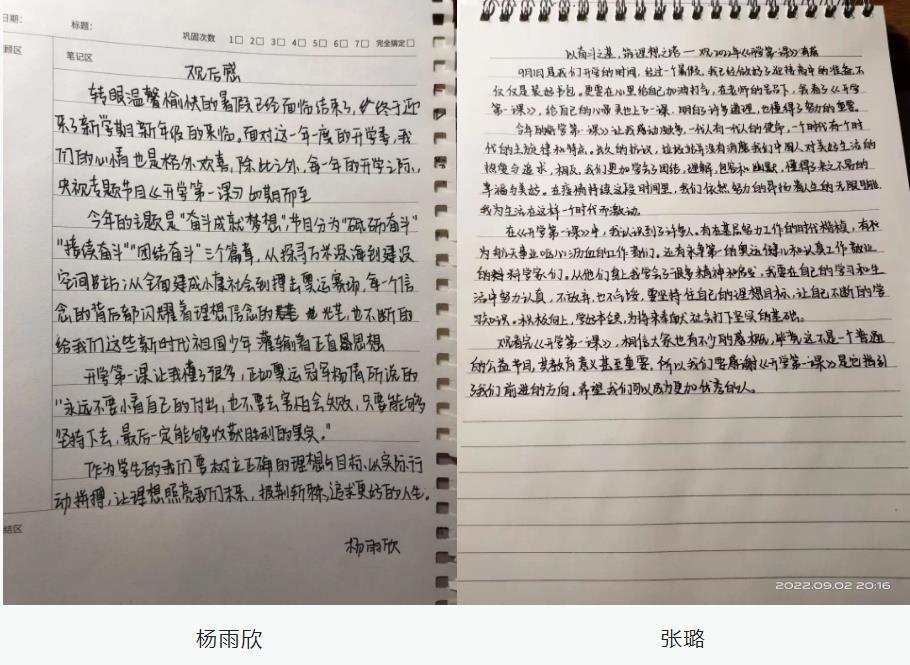 日期:
标题:
巩固次数 1□ 2□ 3□ 4□ 5□ 6□ 7□ 完全搞定□
顾区
笔记区
观后感
转眼温馨愉快的暑假已经面临结束了,终于迎
来了新学期新年级的来临。面对这一年度的开学季,我
们的心情也是格外欢喜,除此之外,每一年的开学之际,
央视专题节目《开学第一课》如期而至
今年的主题是“奋斗成就梦想”,节目分为“砥砺奋斗”
“接续奋斗”“团结奋斗”三个篇章,从探寻万米深海到建设
空间站;从全面建成小康社会到搏击奥运赛场,每一个信
念的背后都闪耀着理想信念的光芒,也不断的
给我们这些新时代祖国少年灌输着正直思想
开学第一课让我懂了很多,正如奥运冠军杨倩所说的
“永远不要小看自己的付出,也不要去害怕会失败,只要能够
坚持下去,最后一定能够收获胜利的果实。”
作为学生的我们要树立正确的理想与目标,以实际行
动拼搏,让理想照亮我们未来,披荆斩棘,追求更好的人生。
结区
杨雨欣
以奋斗之基,筑理想之塔——观2022年《开学第一课》有感
9月1日是我们开学的时间,经过一个暑假,我已经做好了迎接高中的准备,不
仅仅是装好书包。更要在心里给自己加油打气,在老师的号召下,我看了《开学
第一课》,给自己的心带来也上了一课,明白了许多道理,也懂得了努力的重要。
今年的开学第一课》让我感动颇多,一代人有一代人的使命,一个时代有个时
代的主旋律和特点。长久的抗议,这些并没有消磨我们中国人对美好生活的
极望与追求,相反,我们更加学会了团结,理解,包容和幽默,懂得来之不易的
幸福与美好。在疫情持续这段时间里,我们依然努力的昂扬着人生的无限明媚,
我为生活在这样一个时代而激动。
在《开学第一课》中,我认识到了许多人。有在基层努力工作的时代楷模,有我
为航天事业呕心沥血的工作者们。还有来导第一的奥运健儿和认真工作敬业
的科学家们。从他们身上我学会了很多精神和感受,我要在自己的学习和生
活中努力认真,不放弃,也不气馁,要坚持住自己的理想目标,让自己不断的学
习知识。积极向上,学好本领,为将来奉献社会打下坚实的基础。
观看完《开学第一课》,相信大家也有不少的感概,毕竟这不是一个普通
的公益节目,其教育意义甚至重要,所以我们要感谢《开学第一课》是它指引
了我们前进的方向,希望我们可以成为更加优秀的人。
2022.09.02 20:16
杨雨欣
张璐